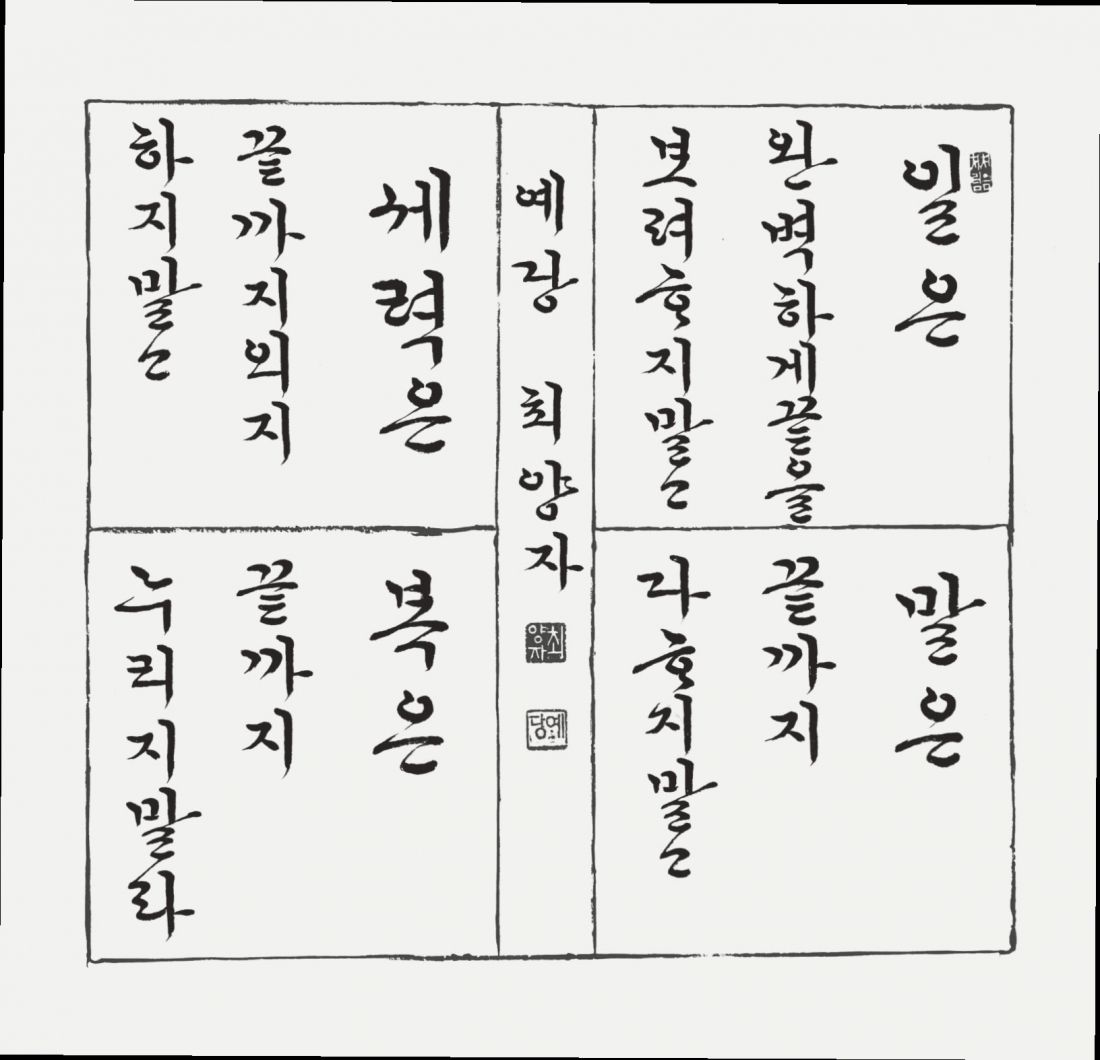 일은
완벽하게끝을
보려ᄒᆞ지말고
말은
끝까지
다ᄒᆞ지말고
세력은
끝까지의지
하지말고
복은
끝까지
누리지말라
예당 최양자
최양자
예당